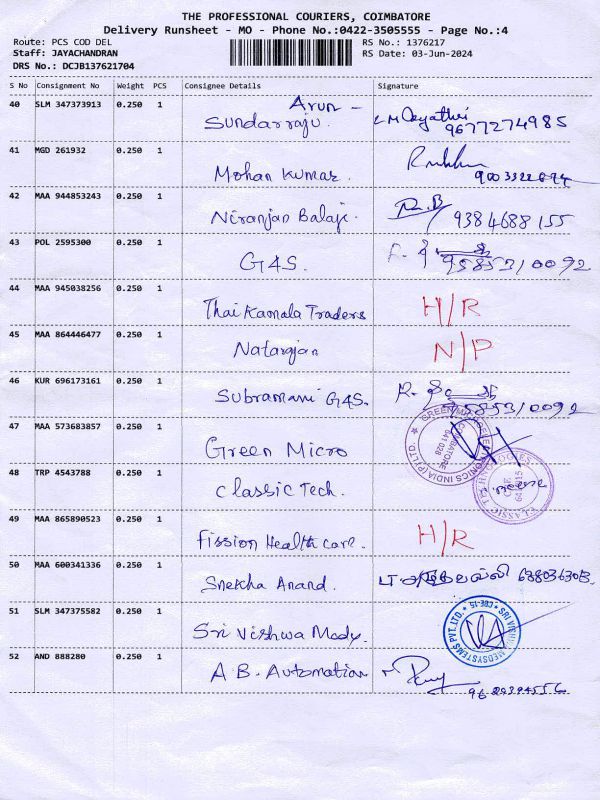 THE PROFESSIONAL COURIERS, COIMBATORE
Delivery Runsheet - MO - Phone No.:0422-3505555 - Page No.:4
Route: PCS COD DEL RS No.: 1376217
Staff: JAYACHANDRAN RS Date: 03-Jun-2024
DRS No.: DCJB137621704
S No Consignment No Weight PCS Consignee Details Signature
40 SLM 347373913 0.250 1 Arun - Sundarraju. 9677274985
41 MGD 261932 0.250 1 Mohan Kumar.
42 MAA 944853243 0.250 1 Niranjan Balaji. 9384688155
43 POL 2595300 0.250 1 G4S. 9585310092
44 MAA 945038256 0.250 1 Thai Kamala Traders H/R
45 MAA 864446477 0.250 1 Natarajan N/P
46 KUR 696173161 0.250 1 Subramani G4S. 9585310092
47 MAA 573683857 0.250 1 Green Micro
COIMBATORE
641 028
48 TRP 4543788 0.250 1 Classic Tech.
49 MAA 865890523 0.250 1 Fission Health care. H/R
50 MAA 600341336 0.250 1 Snekha Anand.
51 SLM 347375582 0.250 1 Sri Vishwa Medy.
52 AND 888280 0.250 1 A B. Automation